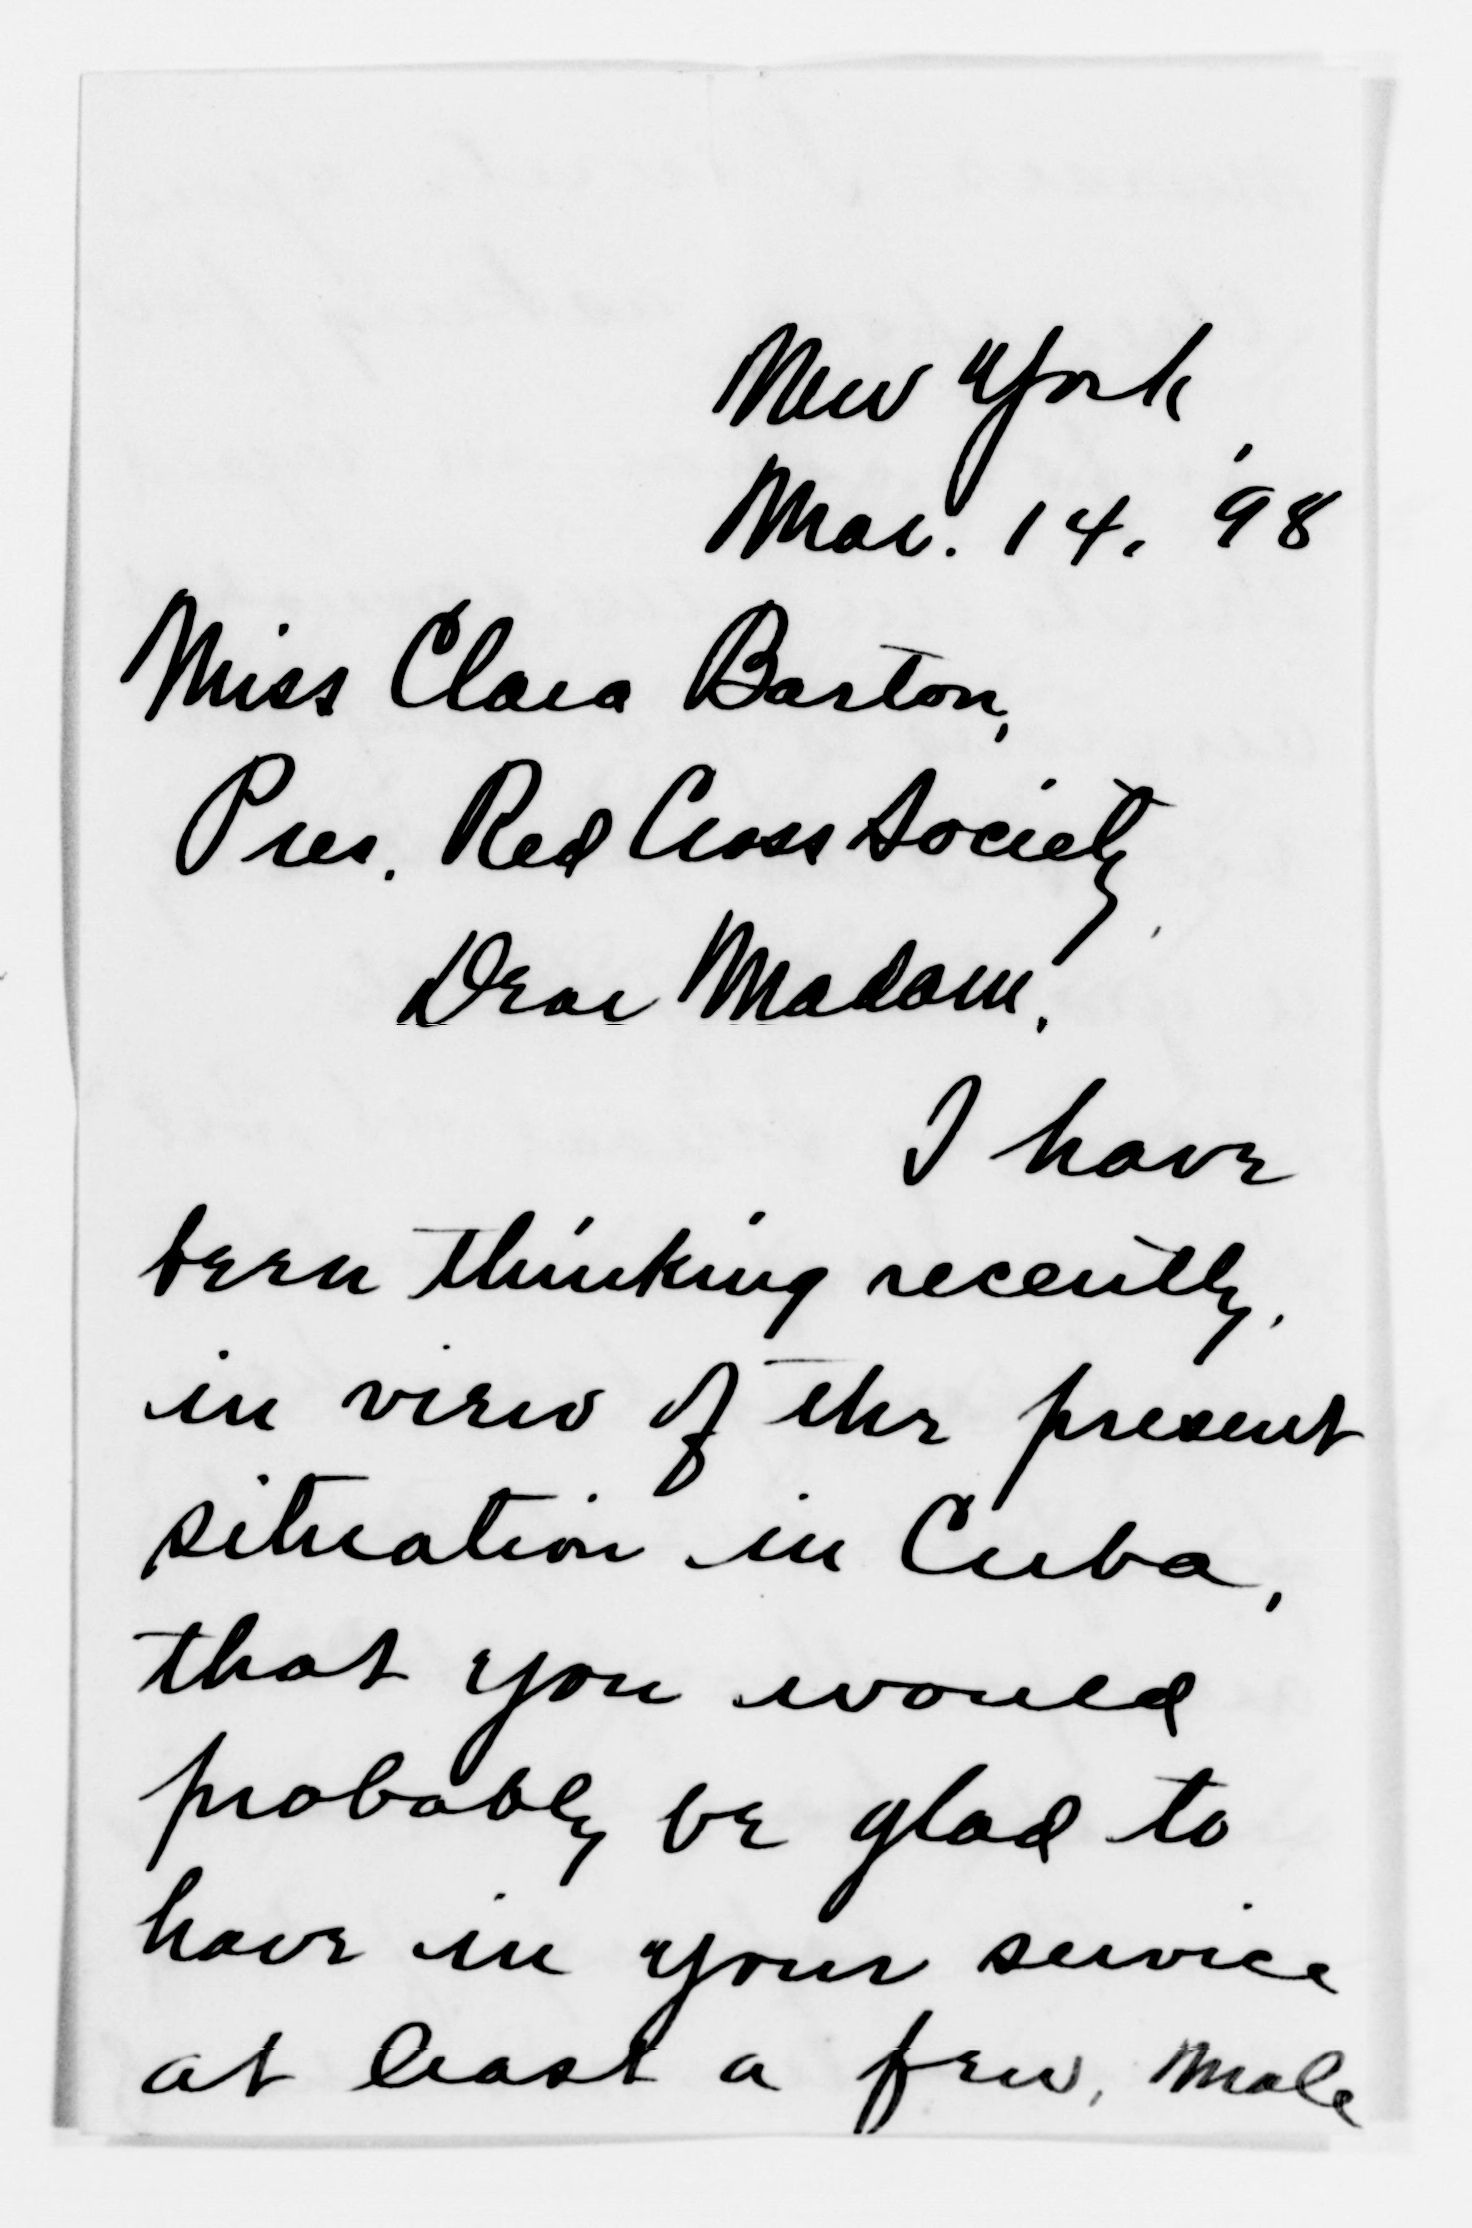 New York,
Mar. 14. '98
Miss Clara Barton,
Pres. Red Cross Society,
Dear Madam.
I have
been thinking recently,
in view of the present
situation in Cuba,
that you would
probably be glad to
have in your service
at least a few, male